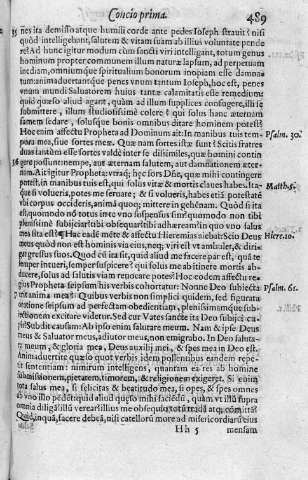 Concio prima. 489
nes ita demisso atque humili corde ante pedes Ioseph strauit (nisi
quòd intelligebant, salutem & vitam suam ab illius voluntate pende
re) Ad hunc igitur modum cùm sancti viri intelligant, totum genus
hominum propter communem illum naturæ lapsum, ad perpetuam
inediam, omniumque spiritualium bonorum inopiam esse damna
humanum animaduertantque penes vnum tantum Ioseph, hoc est, penes
vnum mundi Saluatorem huius tantæ calamitatis esse remedium:
quid quæso aliud agant, quàm ad illum supplices consugere, illi se
submittere, illum studiosissimè colere; qui solus hanc æternam
famem sedare, solusque bonis omnibus ditare hominem potest?
Hoc enim affectu Propheta ad Dominum ait: In manibus tuis tem- Psalm. 30.
pora mea, siue sortes meæ. Quæ nam sortes istæ sunt? Scitis fratres
duas tantum esse sortes valdè inter se dissimiles, quæ homini contin
gere possunt nempe, aut æternam salutem, aut damnationem æter-
nam. Ait igitur Propheta: vtraq; hęc sors Dñe, quæ mihi contingere
potest, in manibus tuis est, qui solus vitæ & mortis claues habes. Ita- Matth. 8.
que si volueris, potes me seruare; & si volueris, habes etiã potestatẽ
vbi corpus occideris, animã quoq; mittendi in gehennam. Quòd si ita
est, quomodo nõ totus intra me suspensus sim? quomodo non tibi
plenissimè subijciar? tibi obsequar? tibi adhæream in quo vno salus
mea sita est? Hac eadẽ mẽte & affectu Hieremias aiebat: Scio Deus Hiere. 10.
meus quòd non est hominis via eius, neq; viri est vt ambulet, & diri-
gat gressus suos. Quòd cũ ita sit, quid aliud me facere par est, quã te
semper intueri, semper suspicere? qui solus me ab itinere mortis ab-
ducere, solus ad salutis viam reuocare potes? Hoc eodem affectu re-
gius Propheta seipsum his verbis cohortatur: Nonne Deo subiecta Psalm. 61.
erit anima mea? Quibus verbis non simplici quidem, sed figurata
oratione seipsum ad perfectam obedientiam, plenissimamque subie-
ctionem excitare videtur. Sed cur Vates sanctè ita Deo subijci cu-
pis? Subdit causam: Ab ipso enim salutare meum. Nam & ipse Deus
meus & Saluator meus, adiutor meus, non emigrabo. In Deo saluta-
re meum, & gloria mea, Deus auxilij mei, & spes mea in Deo est.
Animaduertite quæso quot verbis idem pollentibus eandem repe-
tit sententiam: nimirum intelligens, quantam ea res ab homine
submissionem, pietatem, timorem, & religionem exigeret. Si enim
tota salus mea, si felicitas & beatitudo mea, si opes, & spes omnes
ab vno illo pẽdẽt, quid aliud quæso mihi faciẽdũ, quàm vt illũ supra
omnia diligã, illũ verear, illius me obsequio totũ tradã atq; cõmittã?
Quid, inquã, facere debeã, nisi catellorũ more ad misericordiæ eius
H h 5 mensam